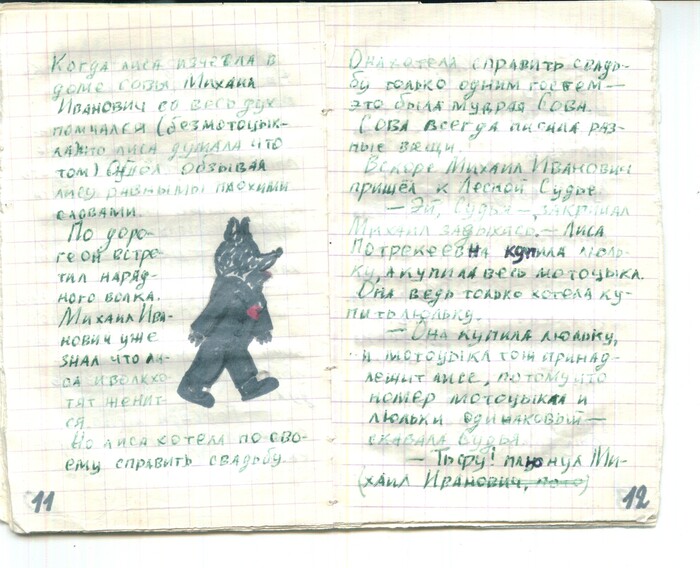 Когда лиса изчезла в
доме совы Михаил
Иванович во весь дух
помчался (без мотоцык-
ла) но лиса думала что
том) Обзывая
лису разнымы плохими
словами.
По доро-
ге он встре-
тил наряд-
ного волка.
Михаил Ива-
нович уже
знал что ли-
са и волк хо-
тят женит-
ся.
Но лиса хотела по сво-
ему справить свадьбу.
11
Она хотела справить свадь-
бу только одним гостем —
это была мудрая Сова.
Сова всегда писала раз-
ные вещи.
Вскоре Михаил Иванович
пришёл к Лесной Судье
— Эй, Судья — закричал
Михаил задыхаясь. — Лиса
Потрекеевна купила люль-
ку, а купила весь мотоцыкл.
Она ведь только хотела ку-
пить люльку.
— Она купила люльку,
и мотоцыкл тож принад-
лежит лисе, потому что
номер мотоцыкла и
люльки одинаковый —
сказала Судья.
— Тьфу! плюнул Ми-
(хаил Иванович,
12